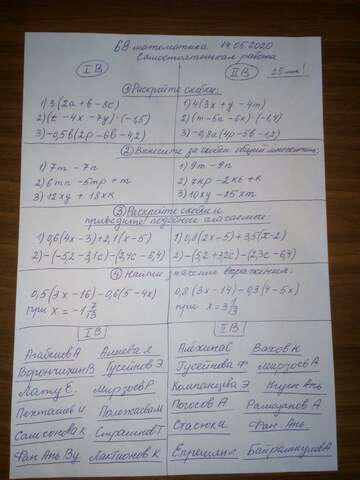 6В математика 14.05.2020
Самостоятельная работа
I В II В 25 мин!
① Раскройте скобки:
1) 3(2a+b-8c) 1) 4(3x+y-4m)
2) (t-4x-7y)·(-1,5) 2) (m-5a-6x)·(-1,4)
3) -0,5b(2p-6b-4,2) 3) -0,8a(4p-5b-1,2)
② Вынесите за скобки общий множитель:
1) 7m-7n 1) 9m-9n
2) 6mn-5mp+m 2) 7kp-2kb+k
3) 12xy+18xk 3) 10xy-25xm
③ Раскройте скобки и
приведите подобные слагаемые:
1) 0,6(4x-3)+2,1(x-5) 1) 0,8(2x-5)+3,5(x-2)
2) -(-5,2-3,1c)-(2,4c-6,4) 2) -(-5,2+3,2c)-(2,3c-6,4)
④ Найти значение выражения:
0,5(3x-16)-0,6(5-4x) 0,8(3x-14)-0,3(4-5x)
при x=-1 7/13 при x=3 1/3
I В II В
Агабиев А Алиева Алехина С Вахов К
Ворончихин В Гусейнов Э Гусейнова Ф Мирзоев А
Лату Е. Мирзоев Р Компанцева Э Нгуен Ань
Похташев И Положай М Погосов А Рамазанов А
Самсонова К Страшнов Т Стасюк И Фан. Ань
Фан Ань Ву Лактионов К Епрецьян Байрамкулов А